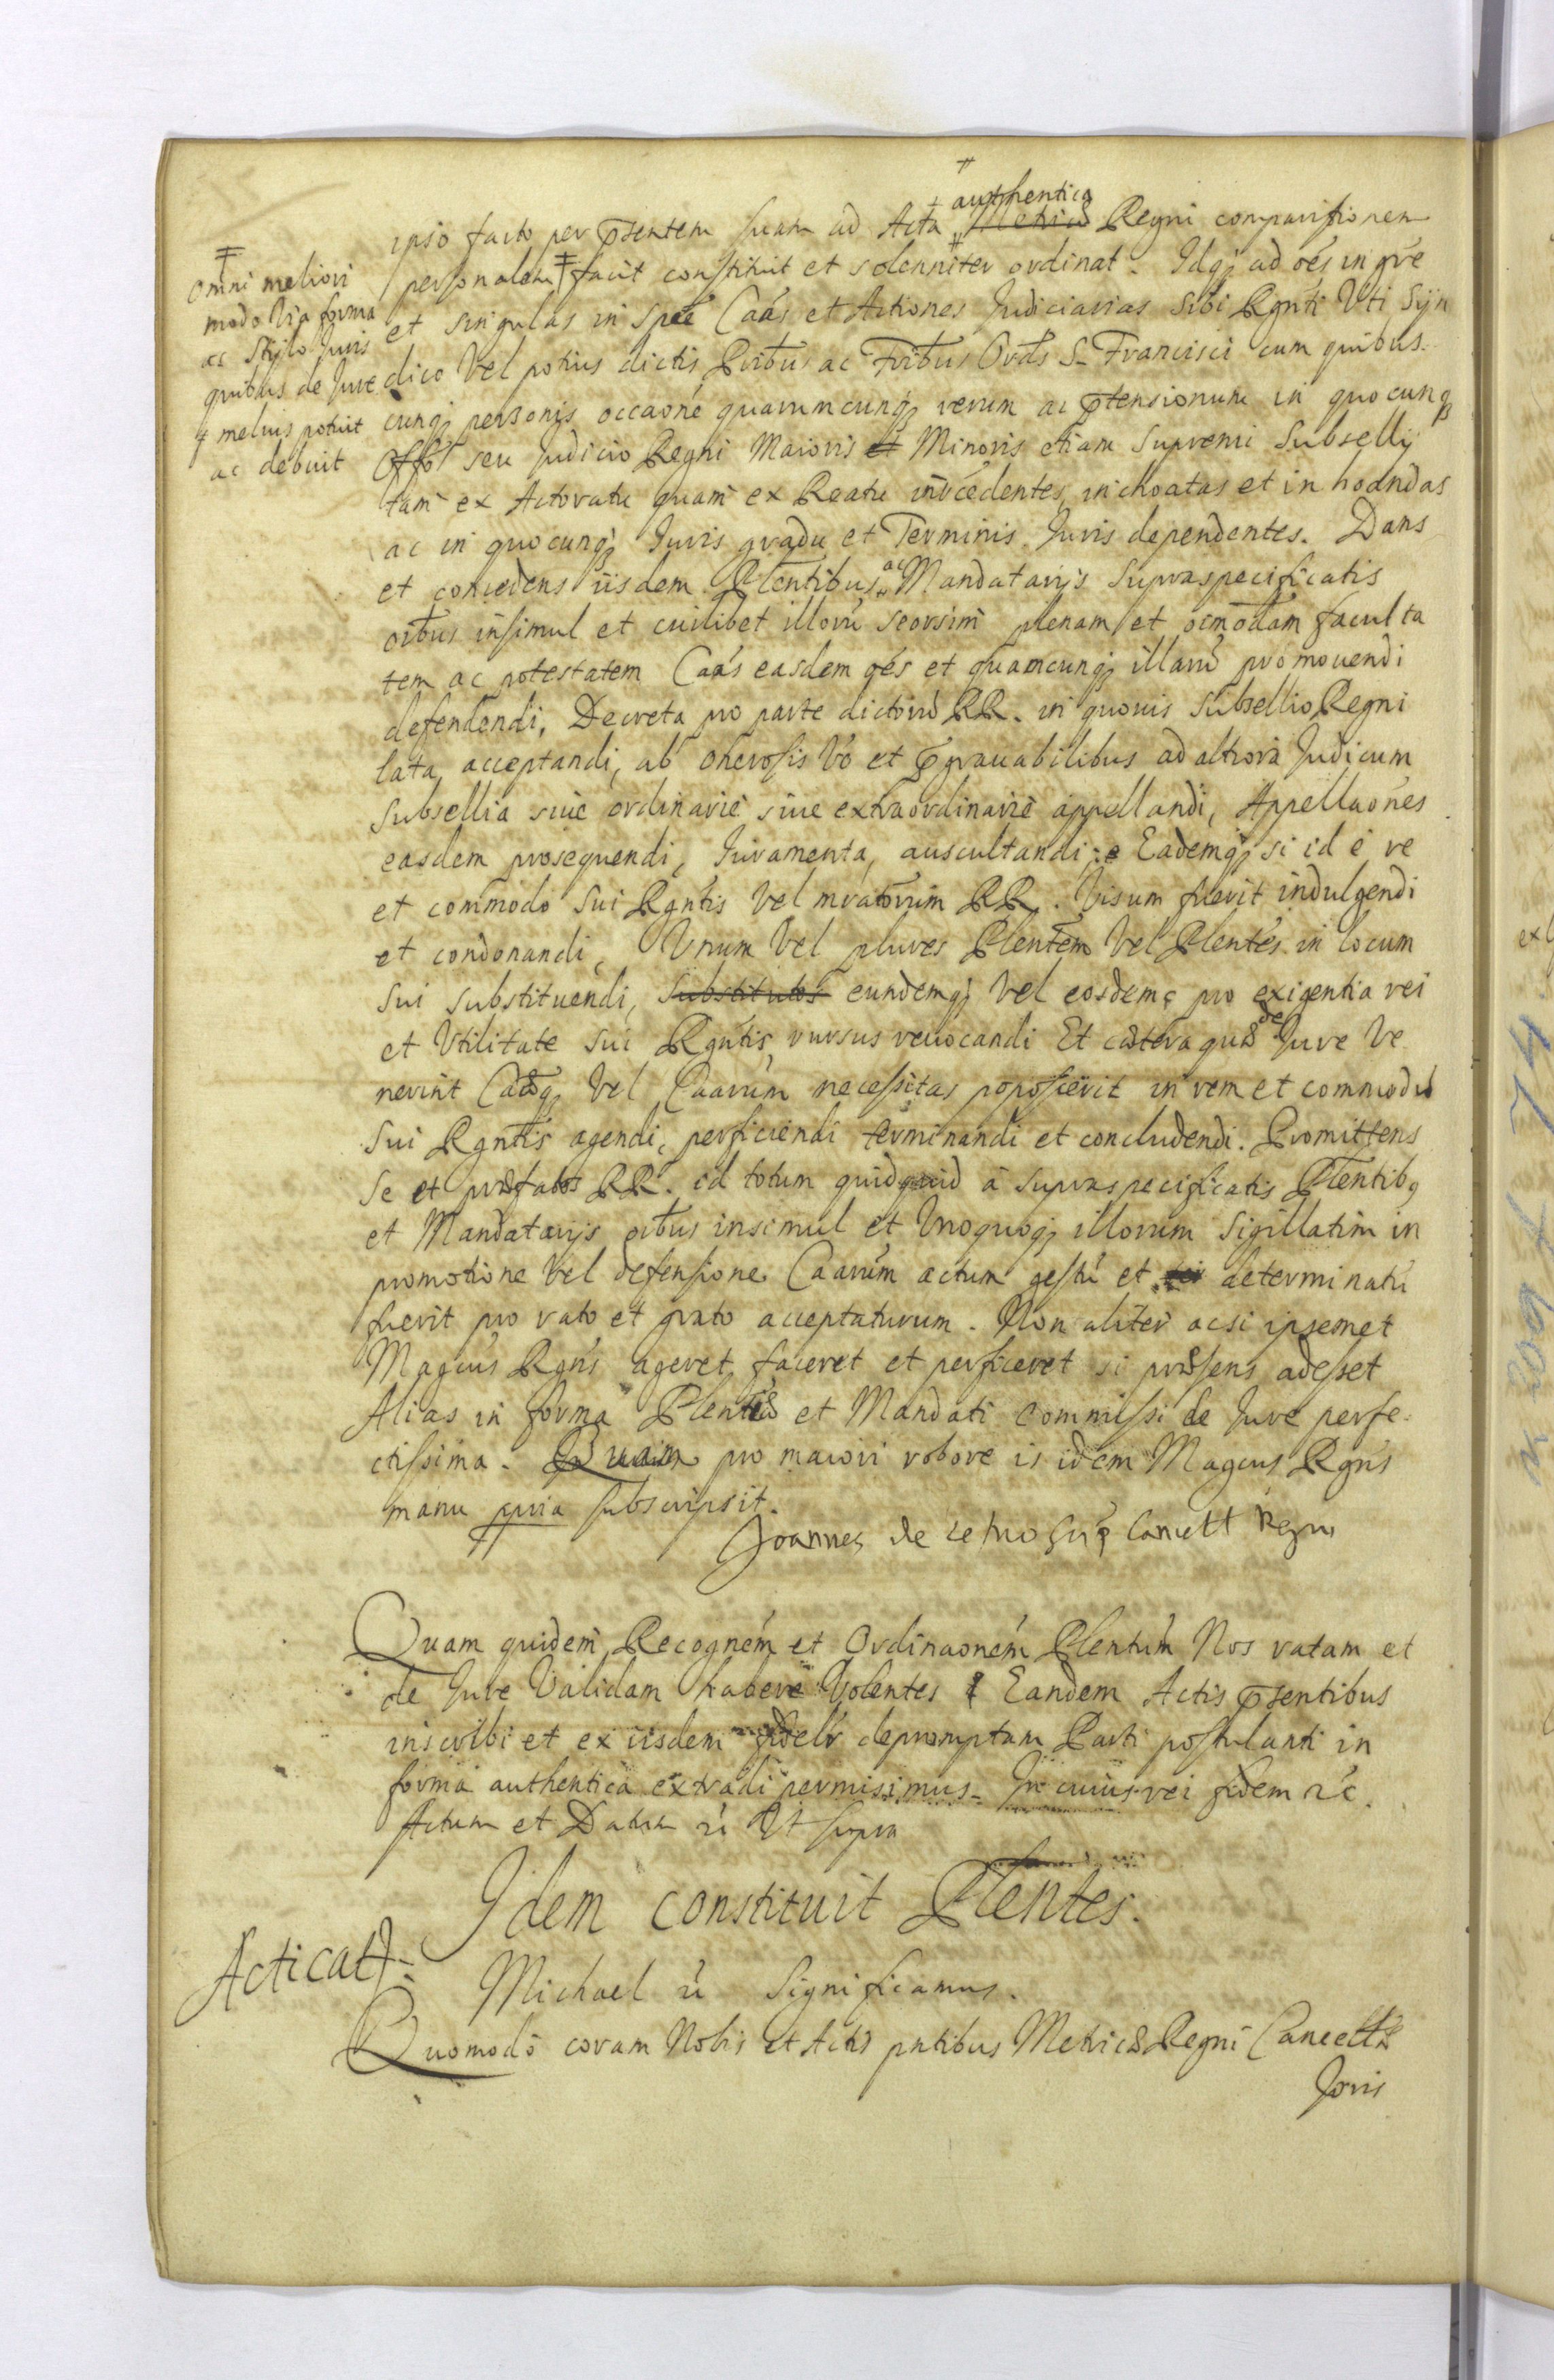 authentica
ipso facto per pñtem suam ad Acta Metrices Regni comparitionem
personalem facit constituit et solenniter ordinat. Idq́ ad oẽs in gṽe
omni meliori
modo via forma
ac stylo Juris
quibus de Jure
q melius potuit
ac debuit
et singulas in spẽe Caãs et Actiones Judiciarias sibi Rgñti Uti Syn
dico vel potius dictis Prĩbus ac Frĩbus Ords S. Francisci cum quibus
cunq́ personis occaõne quarumcunq́ rerum ac p̃tensionum in quocunq́
Offõ seu Judicio Regni Maioris et Minoris etiam Supremi Subsellij
tam ex Actoratu quam ex Reatu introcedentes, inchoatas et inchoandas
ac in quocunq́ Juris gradu et Terminis Juris dependentes. Dans
et concedens iisdem Plentibus ac Mandatarijs supraspecificatis
oĩbus insimul et cuilibet illorũ seorsim plenam et oẽmodam faculta
tem ac potestatem Caãs easdem oẽs et quamcunq́ illarũ promouendi
defendendi, Decreta pro parte dictorũ RR. in quouis Subsellio Regni
lata, acceptandi, ab onerosis võ et p̃grauabilibus ad altiora Judicum
subsellia siue ordinarie siue extraordinarie appellandi, Appellaões
easdem prosequendi, Juramenta, auscultandi, Eademq́ si id è re
et commodo sui Rgñtis vel mratorum RR. visum fuerit indulgendi
et condonandi, Unum vel plures Plentem vel Plentes in locum
sui substituendi, substitutos eundemq́ vel eosdemq́ pro exigentia rei
et Utilitate sui Rgñtis, rursus reuocandi Et cætera quæ de Jure ve
nerint Caæq́ vel Caarum necessitas poposcerit in rem et commodũ
sui Rgñtis agendi, perficiendi terminandi et concludendi. Promittens
se et præfatos RR. id totum quidquid à supraspecificatis Plentibq
et Mandatarijs oĩbus insimul et Unoquoq́ illorum sigillatim in
promotione vel defensione Caarum actum gestũ et determinatũ
fuerit pro rato et grato acceptaturum. Non aliter acsi ipsemet
Magcus Rgñs ageret faceret et perficeret si præsens adesset
Alias in forma Plentiæ et Mandati commissi de Jure perfe
ctissima. Quam pro maiori robore is idem Magcus Rgñs
manu ppria subscripsit.
Joannes de
Quam quidem Recogném et Ordinaoném Plentum Nos ratam et
de Jure Validam habere Volentes Eandem Actis p̃sentibus
inscribi et ex iisdem fidelr depromptam Parti postulanti in
forma authentica extradi permisimus. In cuius rei fidem rc.
Actum et Datum rc Ut supra
Idem constituit Plentes.
Acticat:
Michael rc Significamus.
Quomodo coram Nobis et Actis pntibus Metricæ Regni Cancellæ
Joris